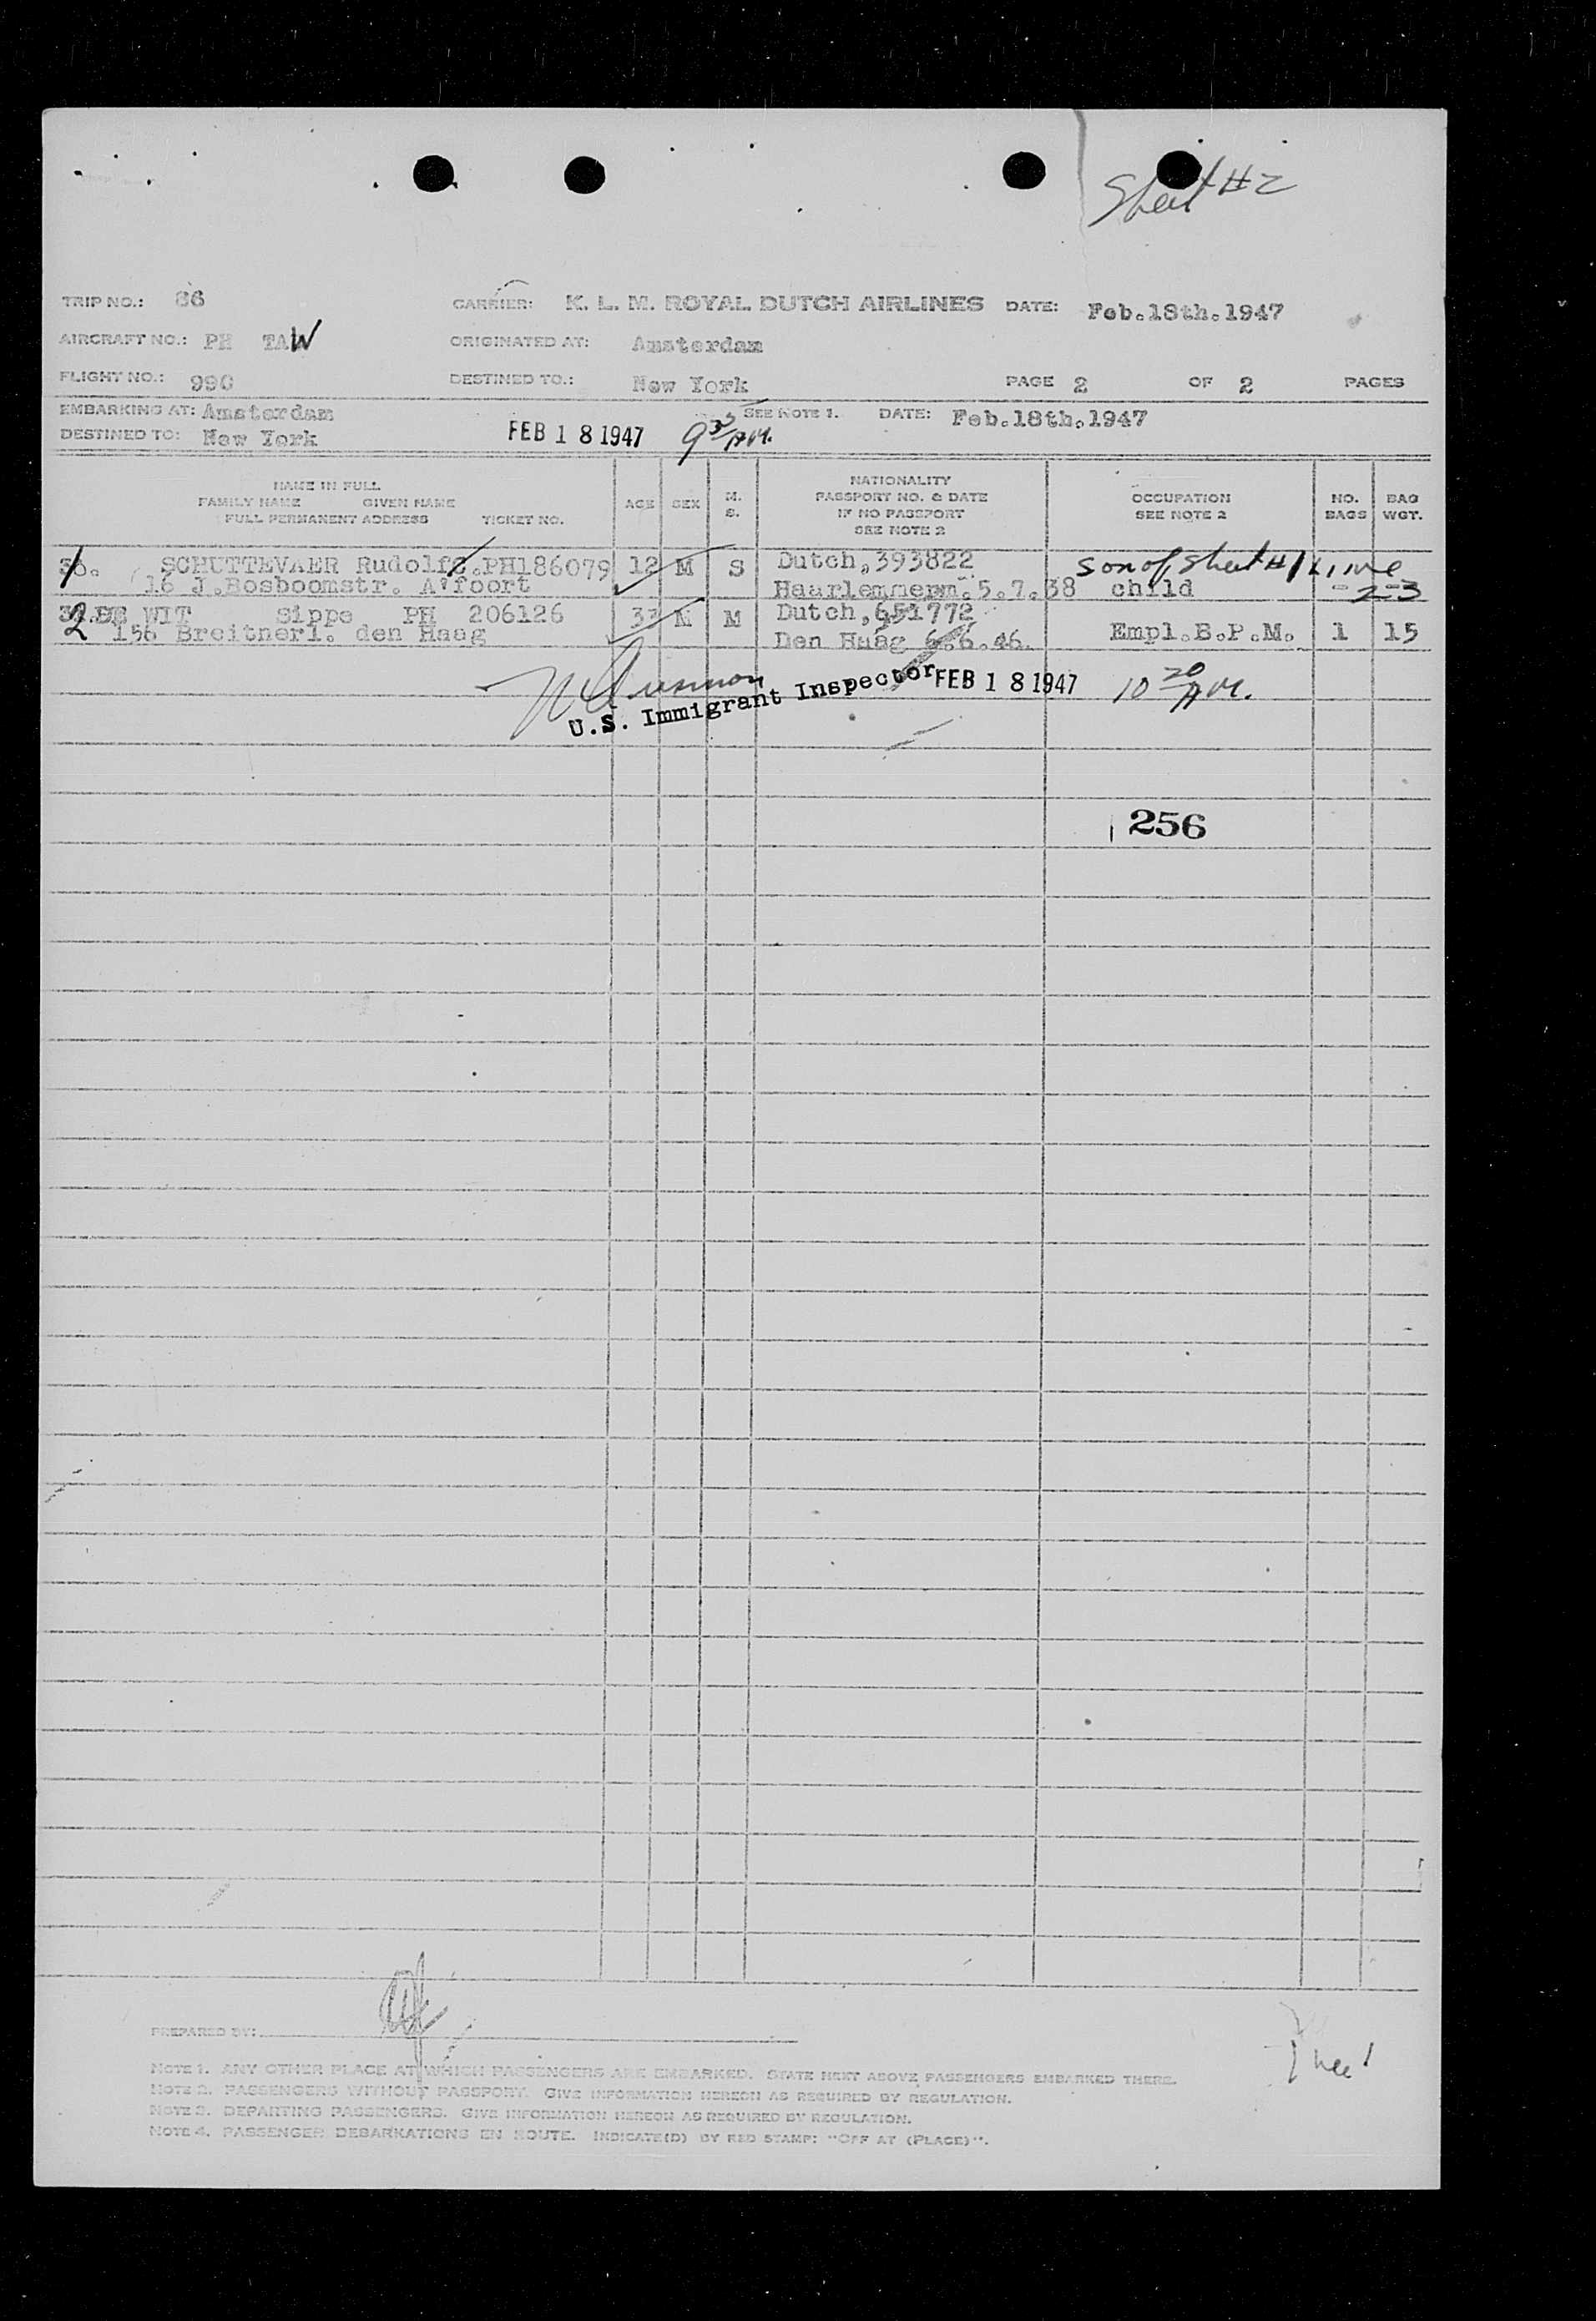 Sheet #2
TRIP NO.: 86 CARRIER: K. L. M. ROYAL DUTCH AIRLINES DATE: Feb.18th.1947
AIRCRAFT NO.: PH TAW ORIGINATED AT: Amsterdam
FLIGHT NO.: 990 DESTINED TO.: New York PAGE 2 OF 2 PAGES
EMBARKING AT: Amsterdam SEE NOTE 1. DATE: Feb.18th.1947
DESTINED TO: New York FEB 18 1947 9 35 AM.
NAME IN FULL
FAMILY NAME GIVEN NAME
FULL PERMANENT ADDRESS TICKET NO.
AGE SEX M. S.
NATIONALITY
PASSPORT NO. & DATE
IF NO PASSPORT
SEE NOTE 2
OCCUPATION
SEE NOTE 2
NO. BAGS
BAG WGT.
SCHUTTEVAER Rudolf PH186079 12 M S Dutch,393822 son of, Sheet #1 Line
16 J.Bosboomstr. A'foort Haarlemmerm.5.7.38 child - 23
2 DE WIT Sippe PH 206126 33 M M Dutch,651772
156 Breitnerl. den Haag Den Haag 6.6.46. Empl.B.P.M. 1 15
U.S. Immigrant Inspector FEB 18 1947 10 20 AM.
256
PREPARED BY:
NOTE 1. ANY OTHER PLACE AT WHICH PASSENGERS ARE EMBARKED. STATE NEXT ABOVE PASSENGERS EMBARKED THERE.
NOTE 2. PASSENGERS WITHOUT PASSPORT. GIVE INFORMATION HEREON AS REQUIRED BY REGULATION.
NOTE 3. DEPARTING PASSENGERS. GIVE INFORMATION HEREON AS REQUIRED BY REGULATION.
NOTE 4. PASSENGER DEBARKATIONS EN ROUTE. INDICATE(D) BY RED STAMP: "OFF AT (PLACE)".